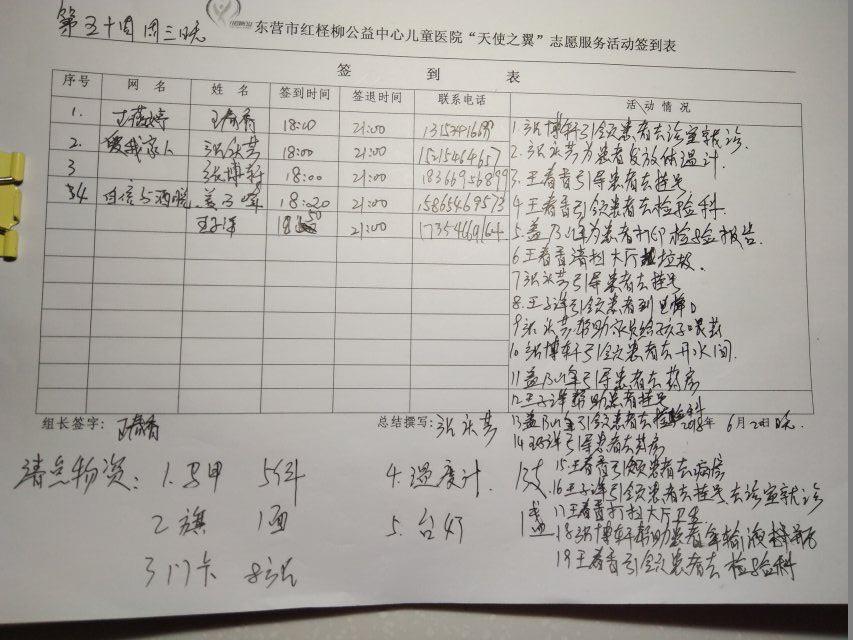 第五十周周三晚
东营市红柽柳公益中心儿童医院“天使之翼”志愿服务活动签到表
签 到 表
序号 网 名 姓 名 签到时间 签退时间 联系电话 活动情况
1. 王春香 18:00 21:00
2. 爱我家人 张永芬 18:00 21:00 15215464657
3 张博轩 18:00 21:00 18366956899
4 自信与洒脱 18:20 21:00 15865469573
王子洋 21:00 17354669164
1.张博轩引领患者去诊室就诊.
2.张永芬为患者发放体温计.
3.王春香引导患者去挂号
4.王春香引领患者去检验科.
5.为患者打印检验报告.
6.王春香清扫大厅垃圾.
7.张永芬引导患者去挂号
8.王子洋引领患者到
9.张永芬帮助家长给孩子喂药
10.张博轩引领患者去开水间.
11.引导患者去药房
12.王子洋帮助患者挂号
13.引领患者去检验科
组长签字: 王春香 总结撰写: 张永芬 2018年 6月20日晚.
14.王子洋引导患者去药房
15.王春香引领患者去病房
16.王子洋引领患者去挂号去诊室就诊
17.王春香打扫大厅卫生
18.张博轩帮助患者拿输液
19.王春香引领患者去检验科
清点物资: 1.马甲 5件 4.温度计. 1支
2.旗 1面 5.台灯 1盏
3.门卡 8张